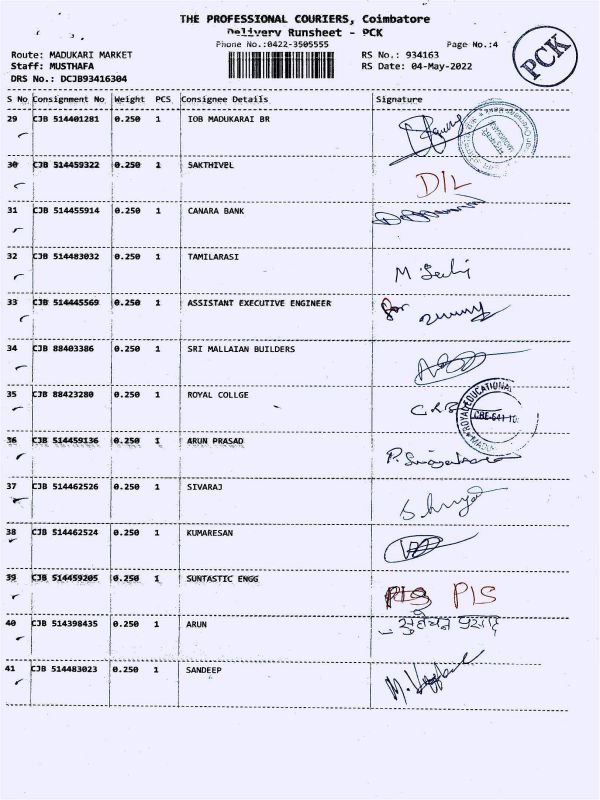 THE PROFESSIONAL COURIERS, Coimbatore
Delivery Runsheet - PCK
Phone No.:0422-3505555
Page No.:4
PCK
Route: MADUKARI MARKET
RS No.: 934163
Staff: MUSTHAFA
RS Date: 04-May-2022
DRS No.: DCJB93416304
S No Consignment No Weight PCS Consignee Details Signature
29 CJB 514401281 0.250 1 IOB MADUKARAI BR
30 CJB 514459322 0.250 1 SAKTHIVEL D/L
31 CJB 514455914 0.250 1 CANARA BANK
32 CJB 514483032 0.250 1 TAMILARASI
33 CJB 514445569 0.250 1 ASSISTANT EXECUTIVE ENGINEER for
34 CJB 88403386 0.250 1 SRI MALLAIAN BUILDERS
35 CJB 88423280 0.250 1 ROYAL COLLGE
ROYAL EDUCATIONAL
36 CJB 514459136 0.250 1 ARUN PRASAD
37 CJB 514462526 0.250 1 SIVARAJ
38 CJB 514462524 0.250 1 KUMARESAN
39 CJB 514459205 0.250 1 SUNTASTIC ENGG PIS PIS
40 CJB 514398435 0.250 1 ARUN
41 CJB 514483023 0.250 1 SANDEEP